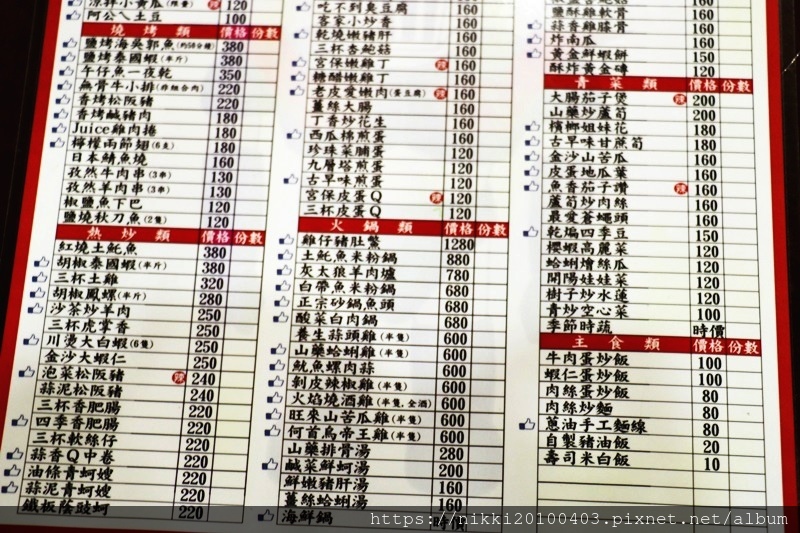 涼拌小黃瓜(限量) 辣 120
阿公ㄟ土豆 100
燒烤類 價格 份數
鹽烤海吳郭魚(約50分鐘) 380
鹽烤泰國蝦(半斤) 380
午仔魚一夜乾 350
無骨牛小排(非組合肉) 220
香烤松阪豬 220
香烤鹹豬肉 180
Juice雞肉捲 180
檸檬兩節翅(6支) 180
日本鯖魚燒 160
孜然牛肉串(3串) 130
孜然羊肉串(3串) 130
椒鹽魚下巴 120
鹽燒秋刀魚(2隻) 120
熱炒類 價格 份數
紅燒土魠魚 380
胡椒泰國蝦(半斤) 380
三杯土雞 320
胡椒鳳螺(半斤) 280
沙茶炒羊肉 250
三杯虎掌香 250
川燙大白蝦(6隻) 250
金沙大蝦仁 250
泡菜松阪豬 辣 240
蒜泥松阪豬 240
三杯香肥腸 220
四季香肥腸 220
三杯軟絲仔 220
蒜香Q中卷 220
油條青蚵嫂 220
蒜泥青蚵嫂 220
鐵板蔭豉蚵 220
吃不到臭豆腐 160
客家小炒香 160
乾燒嫩豬肝 160
三杯杏鮑菇 160
宮保嫩雞丁 辣 160
糖醋嫩雞丁 160
老皮愛嫩肉(蛋豆腐) 辣 160
薑絲大腸 160
丁香炒花生 160
西瓜棉煎蛋 160
珍珠菜脯蛋 120
九層塔煎蛋 120
古早味煎蛋 120
宮保皮蛋Q 辣 120
三杯皮蛋Q 120
火鍋類 價格 份數
雞仔豬肚鱉 1280
土魠魚米粉鍋 880
灰太狼羊肉爐 780
白帶魚米粉鍋 680
正宗砂鍋魚頭 680
酸菜白肉鍋 680
養生蒜頭雞(半隻) 600
山藥蛤蜊雞(半隻) 600
魷魚螺肉蒜 600
剝皮辣椒雞(半隻) 600
火焰燒酒雞(半隻,全酒) 600
旺來山苦瓜雞(半隻) 600
何首烏帝王雞(半隻) 600
山藥排骨湯 280
鹹菜鮮蚵湯 200
鮮嫩豬肝湯 160
薑絲蛤蜊湯 160
海鮮鍋 時價
鹽酥雞軟骨 160
蒜香雞膝骨 160
炸南瓜 160
黃金鮮蝦餅 150
酥炸黃金磚 120
青菜類 價格 份數
大腸茄子煲 辣 200
山藥炒蘆筍 200
檳榔姐妹花 180
古早味甘蔗筍 180
金沙山苦瓜 160
皮蛋地瓜葉 160
魚香茄子讚 辣 160
蘆筍炒肉絲 160
最愛蒼蠅頭 160
乾煸四季豆 150
櫻蝦高麗菜 120
蛤蜊燴絲瓜 120
開陽娃娃菜 120
樹子炒水蓮 120
青炒空心菜 100
季節時蔬 時價
主食類 價格 份數
牛肉蛋炒飯 100
蝦仁蛋炒飯 100
肉絲蛋炒飯 80
肉絲炒麵 80
蔥油手工麵線 80
自製豬油飯 20
壽司米白飯 10
https://nikki20100403.pixnet.net/album